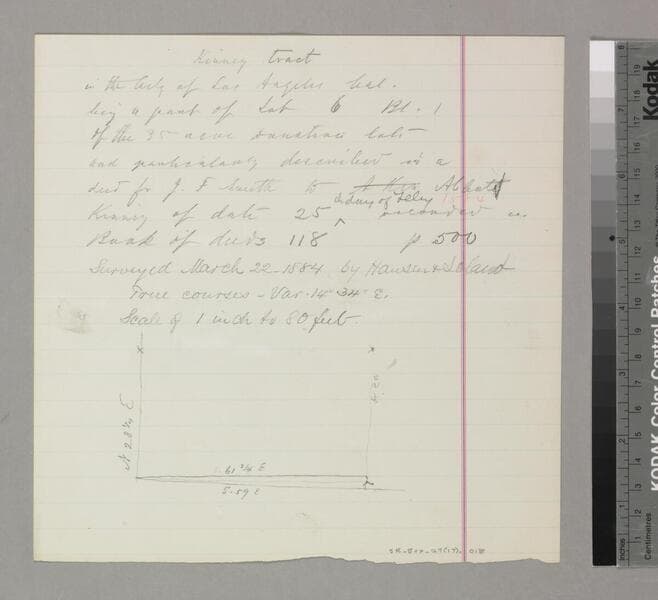 Kinney tract
in the City of Los Angeles Cal.
being a part of Lot 6 Bl. 1
of the 35 acre donation lots
and particularly described in a
deed fr J. F. Smith to Abbott
Kinney of date 25 day of Feby 1884 recorded in
Book of deeds 118 p 500
Surveyed March 22 - 1884 by Hansen & Solano
True courses - Var. 14° 34' E.
Scale of 1 inch to 80 feet.
N 28 1/4 E
61 3/4 E
S. 59 E
SR_Box_27(17)_01B
Kodak
KODAK Color Control Patches
Inches
Centimetres